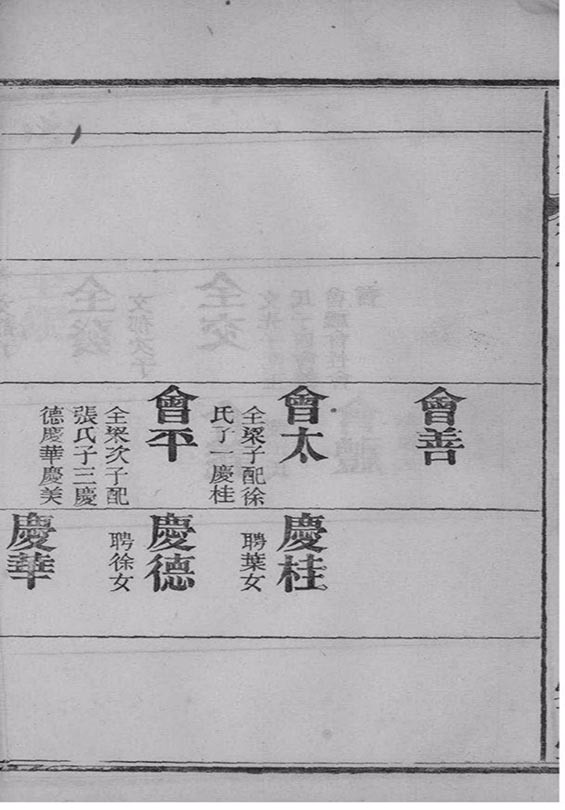 會善
會太
全梁子配徐
氏子一慶桂
會平
全梁次子配
張氏子三慶
德慶華慶美
慶桂
聘葉女
慶德
聘徐女
慶華